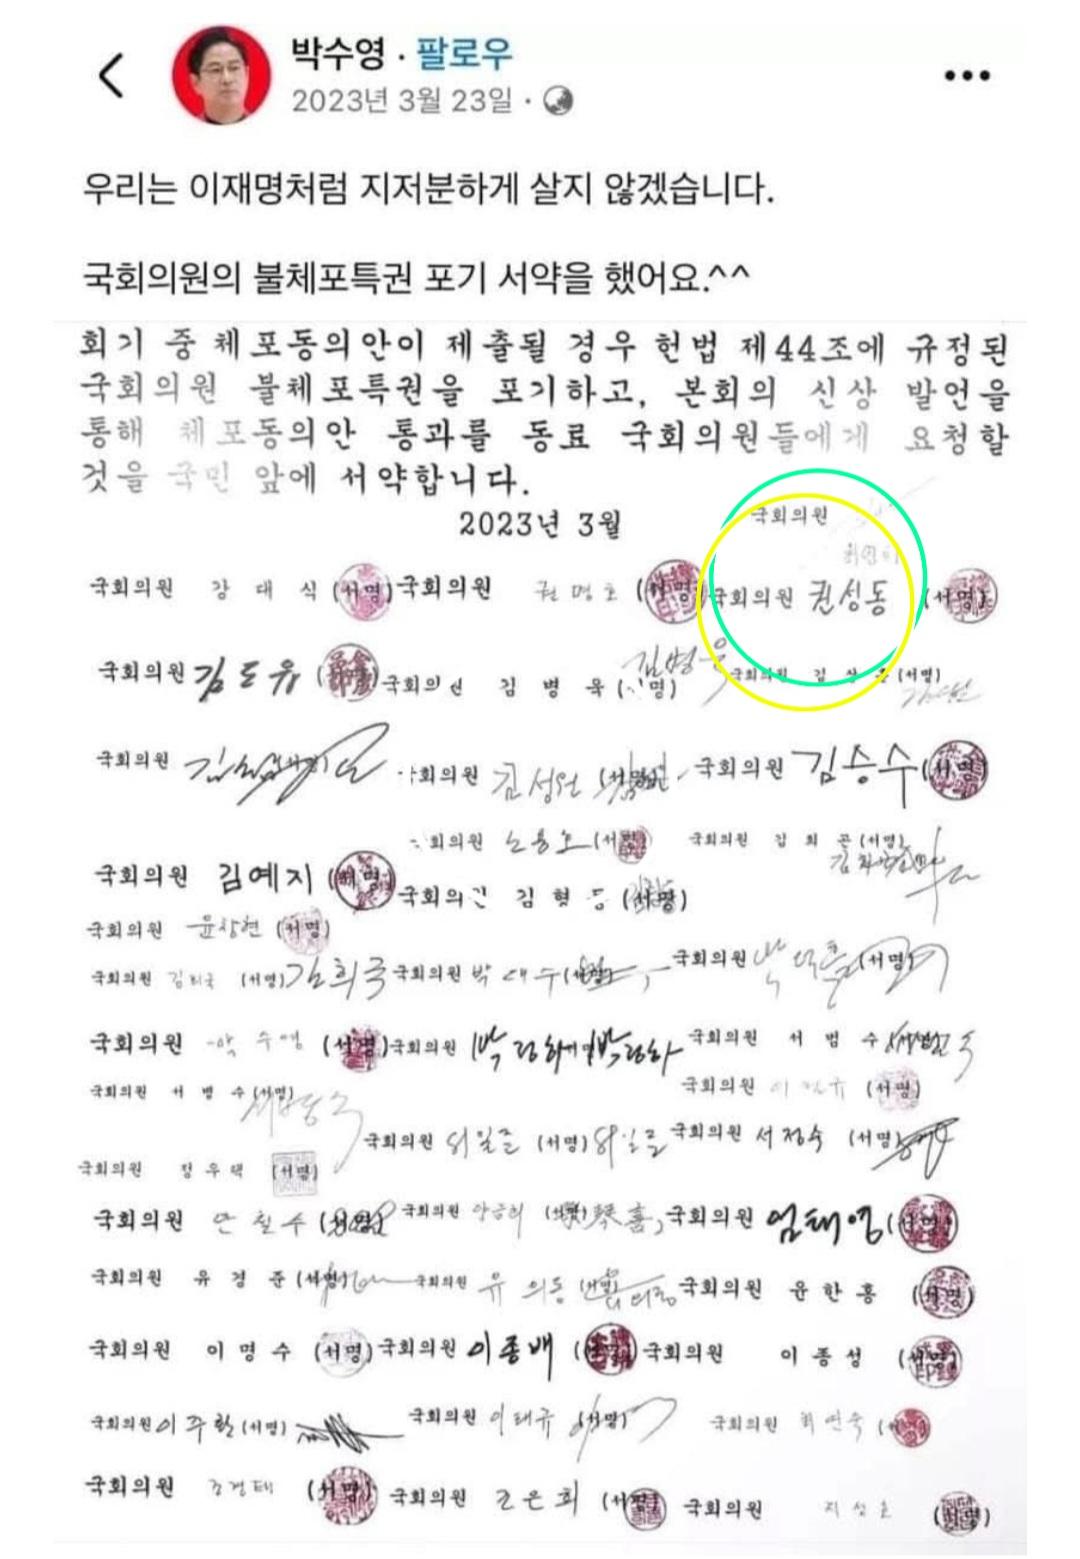 박수영 · 팔로우
2023년 3월 23일 ·
우리는 이재명처럼 지저분하게 살지 않겠습니다.
국회의원의 불체포특권 포기 서약을 했어요.^^
회기 중 체포동의안이 제출될 경우 헌법 제44조에 규정된
국회의원 불체포특권을 포기하고, 본회의 신상 발언을
통해 체포동의안 통과를 동료 국회의원들에게 요청할
것을 국민 앞에 서약합니다.
2023년 3월
국회의원
국회의원 강대식 (서명) 국회의원 권명호 (서명) 국회의원 권성동 (서명)
국회의원 김도읍 국회의원 김병욱 (서명) 김병욱 국회의원 김상훈 (서명)
국회의원 국회의원 김성원 국회의원 김승수 (서명)
국회의원 노용호 (서명) 국회의원 김희곤 (서명)
국회의원 김예지 (서명) 국회의원 김형동 (서명)
국회의원 윤창현 (서명)
국회의원 김희국 (서명) 김희국 국회의원 박대수 국회의원 박덕흠 (서명)
국회의원 박수영 (서명) 국회의원 박정하 박정하 국회의원 서범수
국회의원 서병수 (서명) 서병수 국회의원 (서명)
국회의원 (서명) 국회의원 서정숙 (서명)
국회의원 정우택 (서명)
국회의원 안철수 (서명) 국회의원 양금희 (서명) 국회의원 엄태영 (서명)
국회의원 유경준 (서명) 국회의원 유의동 국회의원 윤한홍 (서명)
국회의원 이명수 (서명) 국회의원 이종배 (서명) 국회의원 이종성 (서명)
국회의원 이주환 (서명) 국회의원 이태규 (서명) 국회의원 최연숙 (서명)
국회의원 조경태 (서명) 국회의원 조은희 (서명) 국회의원 지성호 (서명)